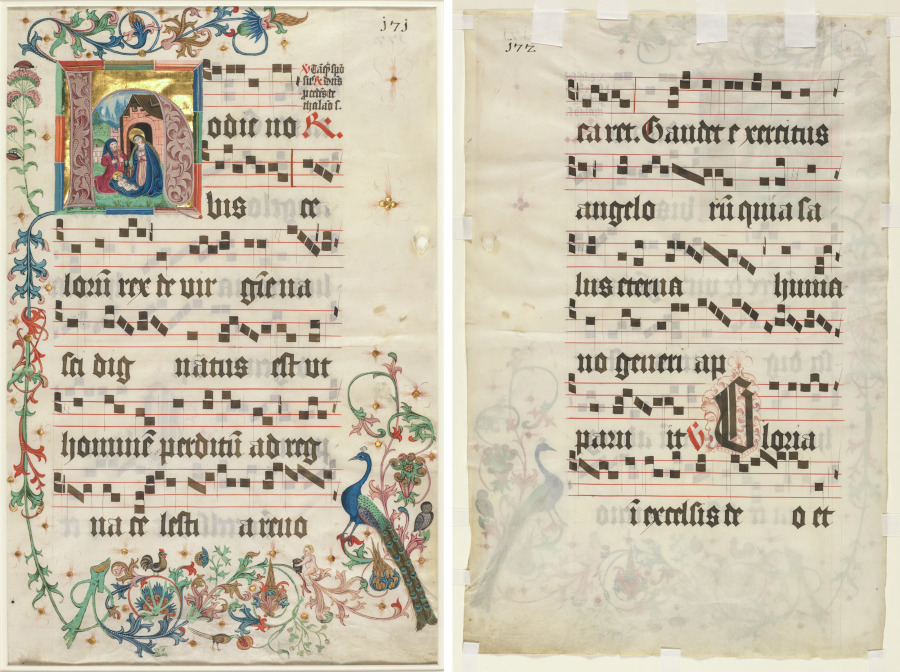 j7j
Hodie no R.
bis ce
lorū rex de vir gīe na
sci dig natus est ut
hominē perditū ad reg
na ce lesti a revo
j72
ca ret. Gaudet e xercitus
angelo rū quia sa
lus eterna huma
no generi ap
paru it V Gloria
ī excelsis de o et